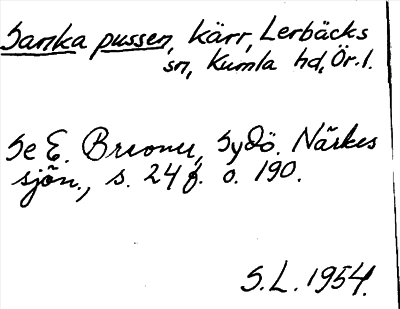 Sanka pussen, kärr, Lerbäcks
sn, Kumla hd, Ör.l.
Se E. Bruonu, Sydö. Närkes
sjön., s. 24 f. o. 190.
S.L. 1954.